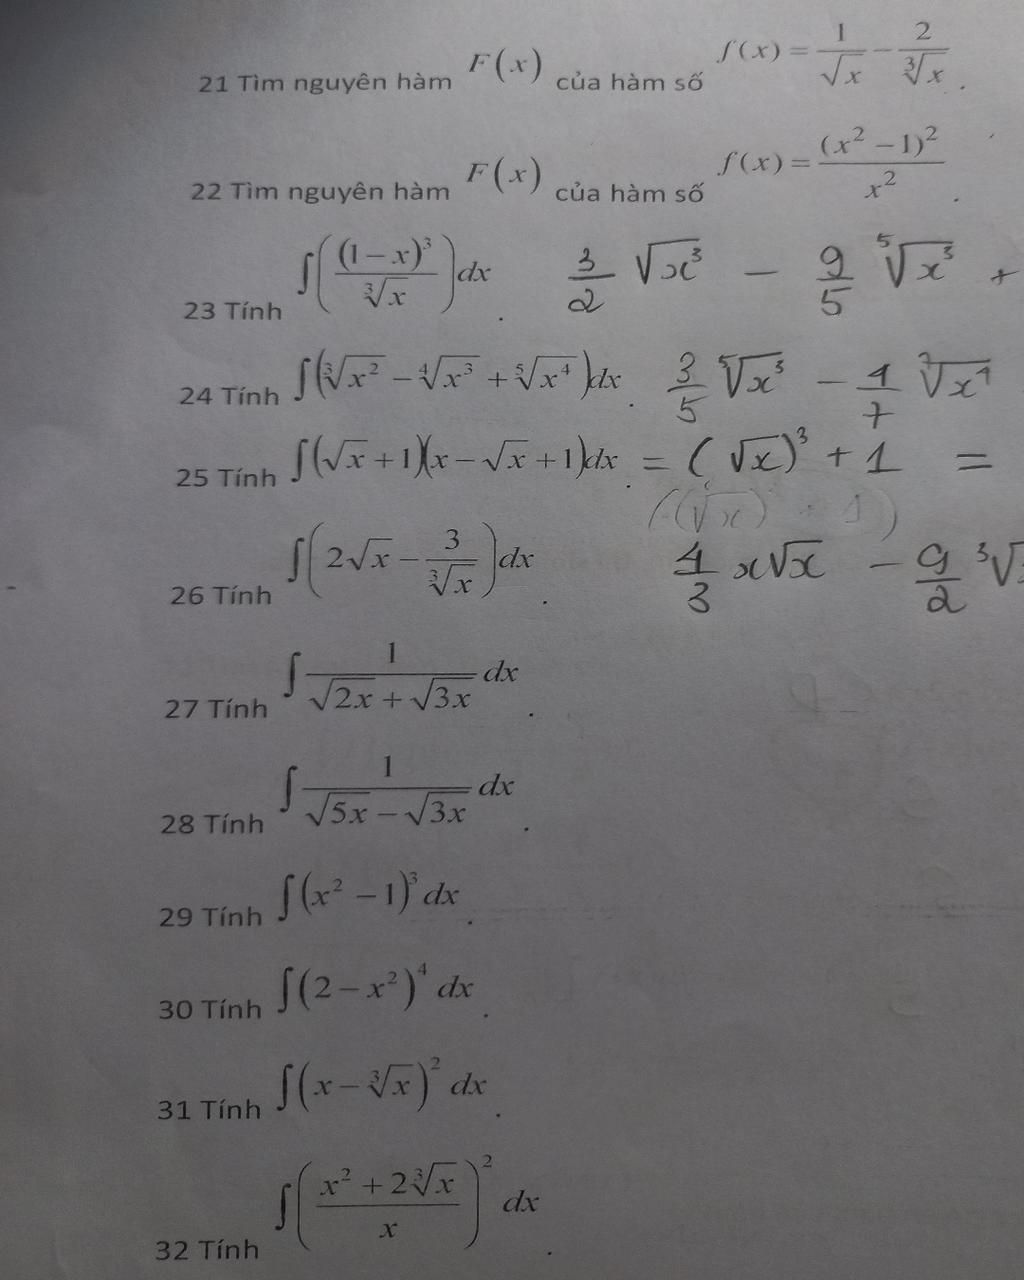 21 Tìm nguyên hàm F(x) của hàm số f(x) = 1/√x − 2/∛x .
22 Tìm nguyên hàm F(x) của hàm số f(x) = (x² − 1)²/x² .
23 Tính ∫((1 − x)³/∛x)dx . 3/2 √x³ − 9/5 ⁵√x³ +
24 Tính ∫(∛x² − ⁴√x³ + ⁵√x⁴)dx . 3/5 ⁵√x³ − 4/7 ⁷√x⁴
25 Tính ∫(√x + 1)(x − √x + 1)dx . = (√x)³ + 1 =
((√x) + 1)
26 Tính ∫(2√x − 3/∛x)dx . 4/3 x√x − 9/2 ³√
27 Tính ∫ 1/(√2x + √3x) dx .
28 Tính ∫ 1/(√5x − √3x) dx .
29 Tính ∫(x² − 1)³ dx .
30 Tính ∫(2 − x²)⁴ dx .
31 Tính ∫(x − ∛x)² dx .
32 Tính ∫((x² + 2∛x)/x)² dx .